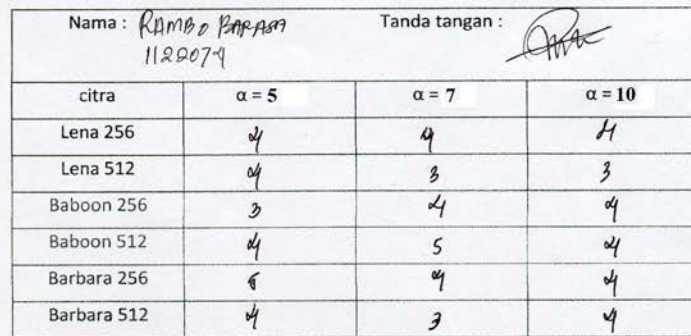 Nama : RAMBO BARASA Tanda tangan :
1122074
citra α = 5 α = 7 α = 10
Lena 256 4 4 4
Lena 512 4 3 3
Baboon 256 3 4 4
Baboon 512 4 5 4
Barbara 256 4 4
Barbara 512 4 3 4